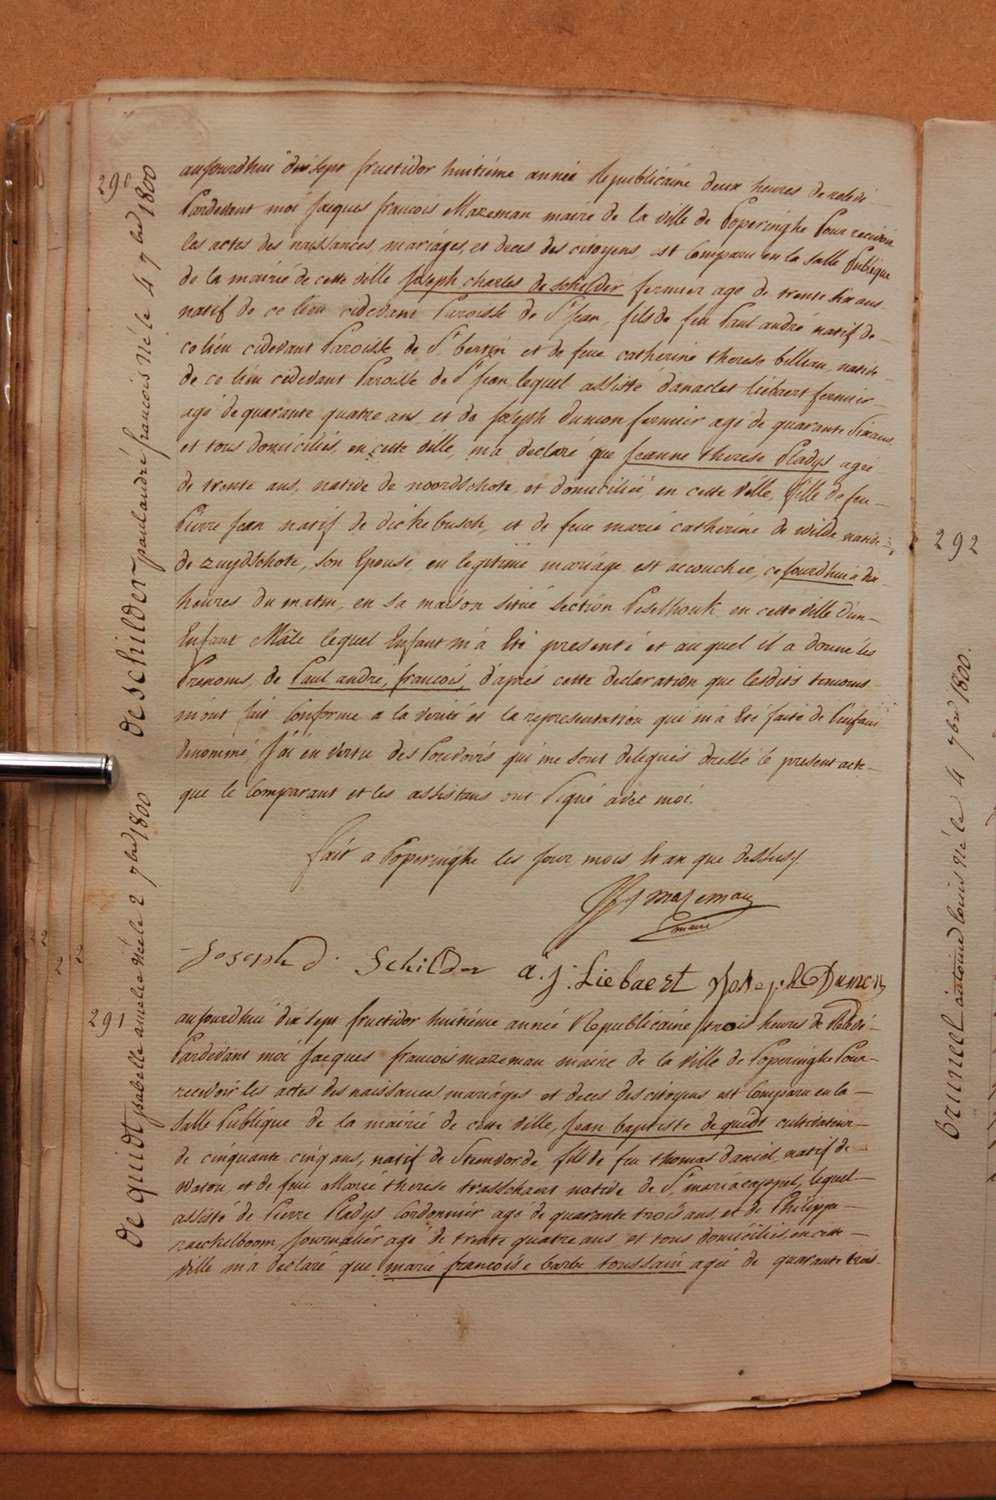 290
deschilder paul andré francois Né le 4 7bre 1800
aujourdhui dix sept fructidor huitiéme année Republicaine deux heures de relévé
Pardevant moi Jacques francois Mazeman maire de la ville de Poperinghe Pour recevoir
les actes des naissances, mariáges, et deces des citoyens, est Comparu en la salle Publique
de la mairié de cette ville Joseph charles de schilder fermier agé de trente six ans
natif de ce lieu cidevant Paroisse de St Jean, fils de feu Paul andré natif de
ce lieu cidevant Paroisse de St bertin et de feue catherine therese billiau, native
de ce lieu cidevant Paroisse de St Jean lequel assisté danaclet liebaert fermier
agé de quarante quatre ans, et de Joseph Dumon fermier agé de quarante six ans
et tous domiciliés, en cette ville, m'a declaré que Jeanne therese Pladys agée
de trente ans, native de noordschote, et domiciliée, en cette ville, fille de feu
Pierre Jean natif de dickebusch, et de feue marié catherine de wilde native
de zuydschote, son Epouse, en legitime mariáge est accouchée, ce Jourdhui a dix
heures du matin, en sa maison situé section Peselhouk en cette ville d'un
Enfant Mâle lequel Enfant m'a Eté presenté et auquel il a donné les
Prenoms, de Paul andre, francois, d'aprés cette declaration que lesdits temoins
mont fait Conforme a la verité et la representation qui m'a Eté faite de l'enfant
denommé J'ai en vertu des Pouvoirs qui me sont delegués dressé le present acte
que le Comparant et les assistans ont Signé avec moi.
fait a Poperinghe les jour mois Et an que dessus.
JF Mazeman
maire
Joseph D. Schilder a. j. Liebaert Joseph Dumon
291
de quidt isabelle amelie Née le 2 7bre 1800
aujourdhui dix sept fructidor huitiéme année Republicaine trois heures de Relévé
Pardevant moi Jacques francois mazeman maire de la ville de Poperinghe Pour
recevoir les actes des naissances mariáges et deces des citoyens est Comparu en la
salle Publique de la mairié de cette ville, Jean baptiste de quidt cultivateur
de cinquante cinq ans, natif de Steenvorde, fils de feu thomas daniel, natif de
watou, et de feue Marie therese trasschaert native de St mariacappel, lequel
assisté de Pierre Pladys Cordonnier agé de quarante trois ans, et de Philippe
raeckelboom, Journalier agé de trente quatre ans, et tous domiciliés, en cette
ville m'a declaré que marié francoise barbe toussain agée de quarante trois
292
brunel antoine louis Né le 4 7bre 1800.